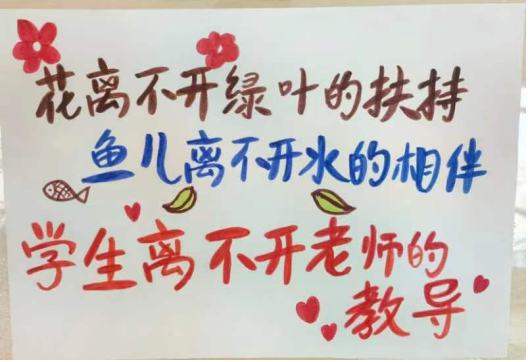 花离不开绿叶的扶持
鱼儿离不开水的相伴
学生离不开老师的
教导